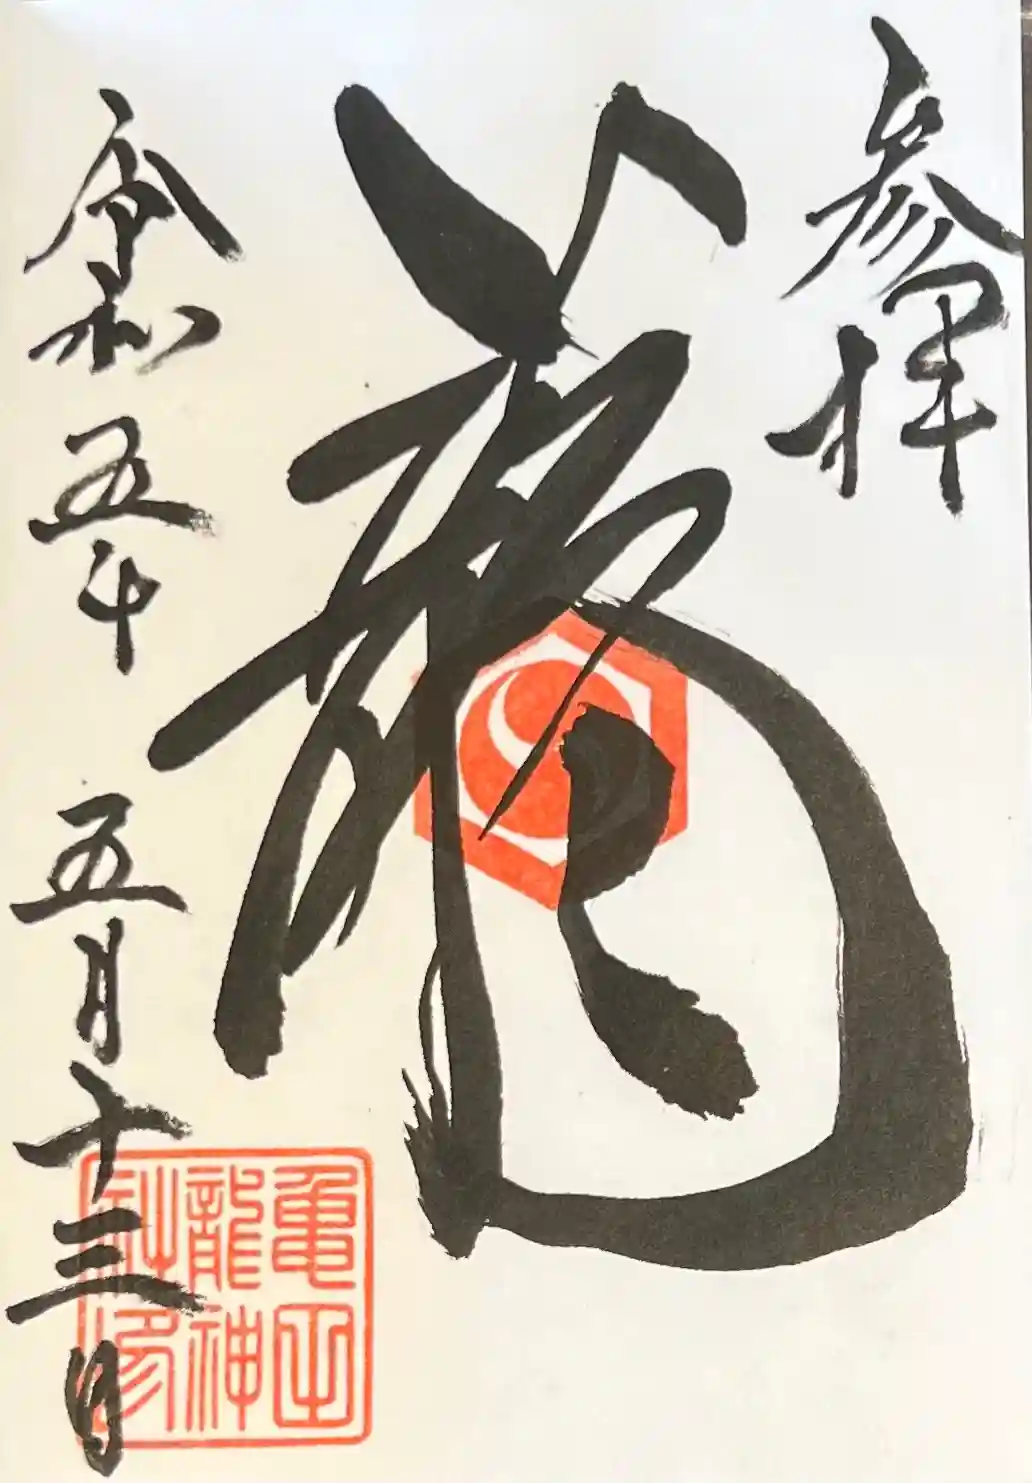 参拝
龍
令和五年 五月十三日
亀岡
龍神
社